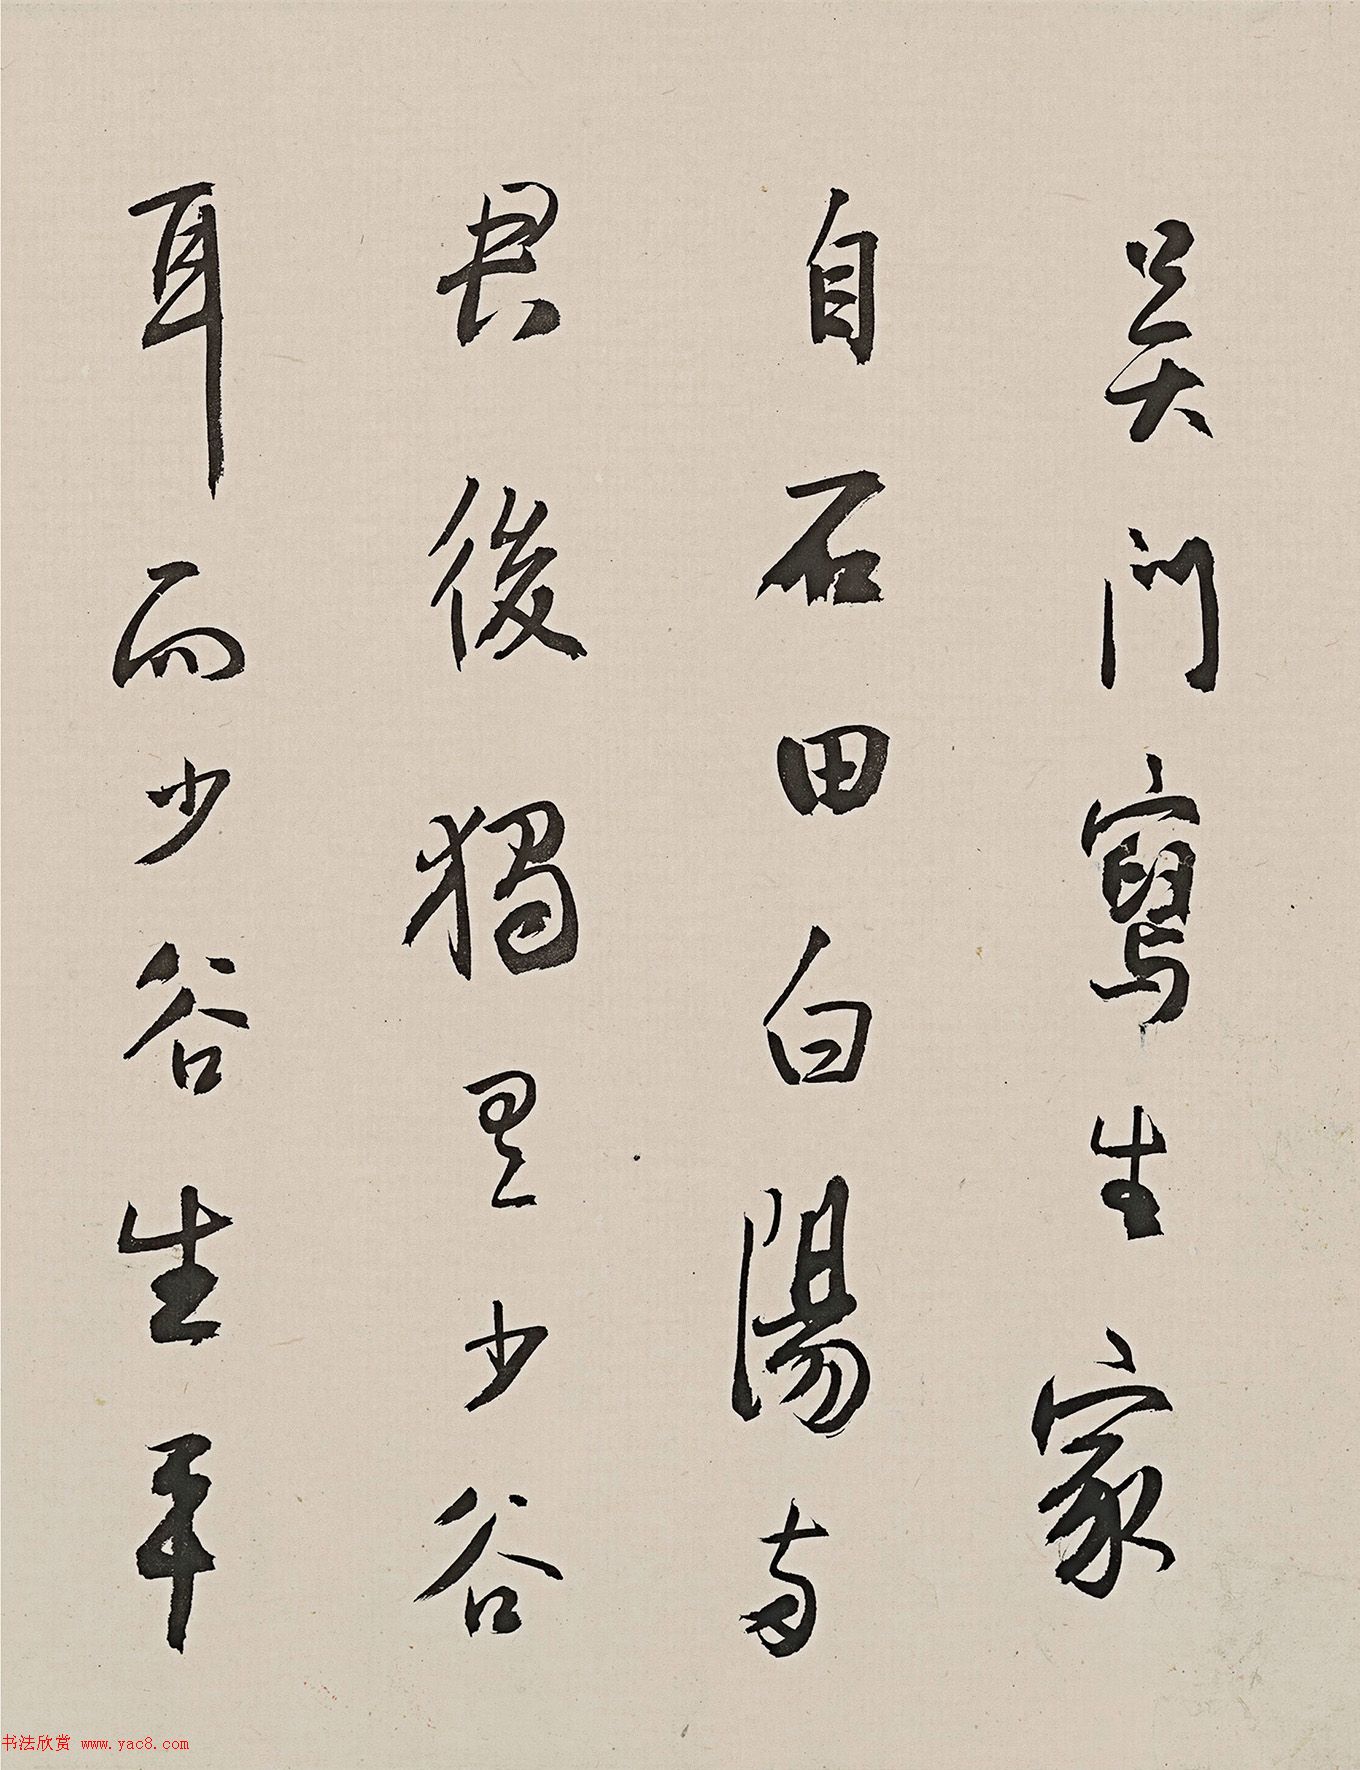 吳門寫生家
自石田白陽兩
君後獨見少谷
耳而少谷生平
书法欣赏 www.yac8.com